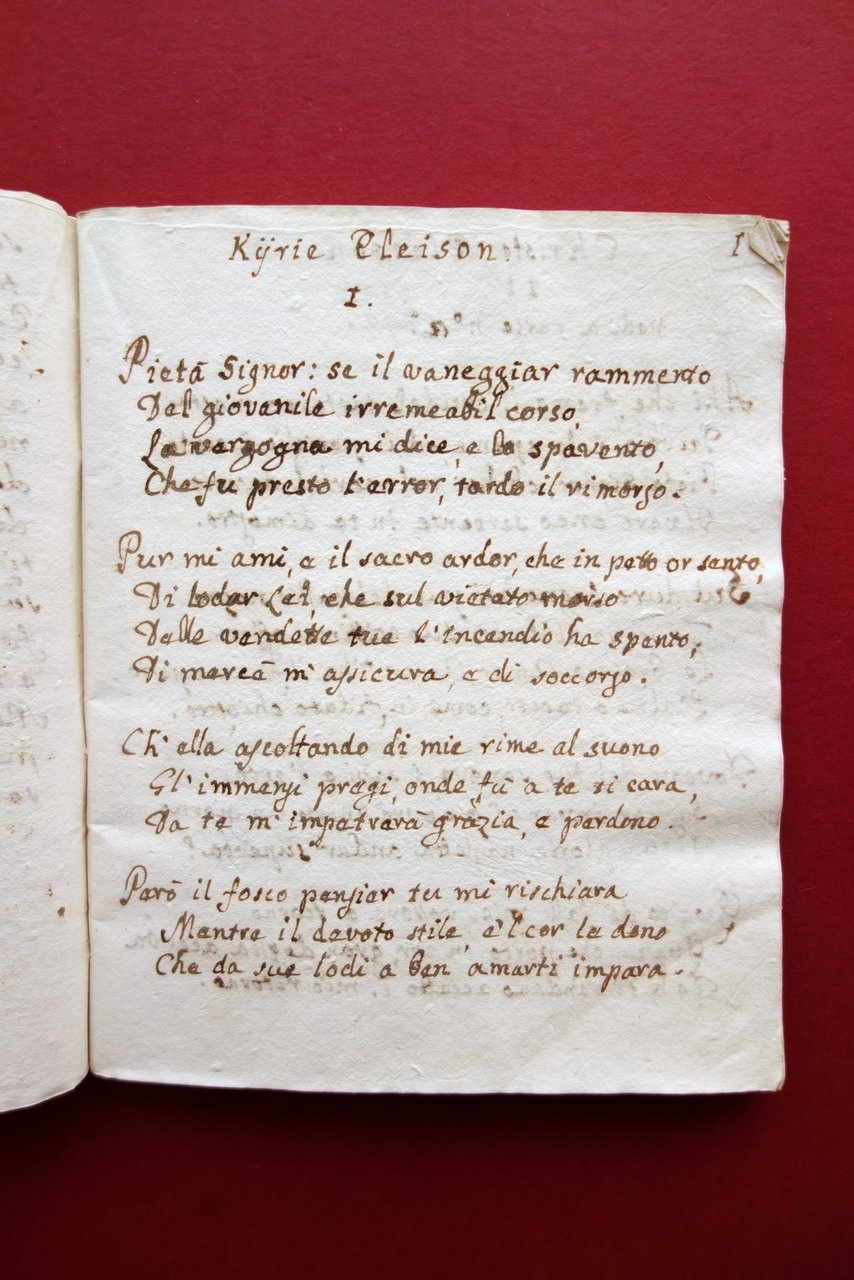 Kÿrie Eleison
1
I.
Pietà Signor: se il vaneggiar rammento
Del giovanile irremeabil corso,
La vergogna mi dice, e lo spavento,
Che fu presto l'error, tardo il rimorso.
Pur mi ami, e il sacro ardor, che in petto or sento,
Di lodar Lei, che sul vietato morso
Delle vendette tue l'incendio ha spento,
Di mercè m'assicura, e di soccorso.
Ch'ella ascoltando di mie rime al suono
Gl'immensi pregi, onde fù a te sì cara,
Da te m'impetrarà grazia, e perdono.
Però il fosco pensier tu mi rischiara
Mentre il devoto stile, e'l cor le dono
Che da sue lodi a ben amarti impara.